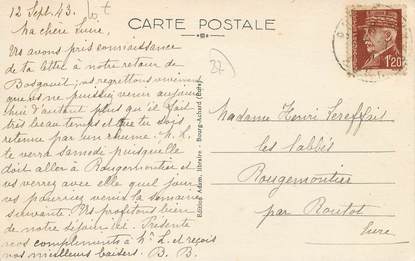 12 Sept. 43.
CARTE POSTALE
27
1.20
Ma chère Luce,
Ns avons pris connaissance
de ta lettre à notre retour de
Bosgouël; ns regrettons vivement
que vs ne puissiez venir aujour
d'hui d'autant plus qu'il fait
très beau temps et que tu sois
retenue par un rhume. M. L.
te verra samedi puisqu'elle
doit aller à Rougemontier et
vs verrez avec elle quel jour
vs pourriez venir la semaine
suivante. Ns profitons bien
de notre séjour ici. Présente
nos compléments à Mr L. et reçois
nos meilleurs baisers. B. B.
Edition Adam, libraire - Bourg-Achard (Eure)
Madame Henri
les
Rougemontier
par Routot
Eure